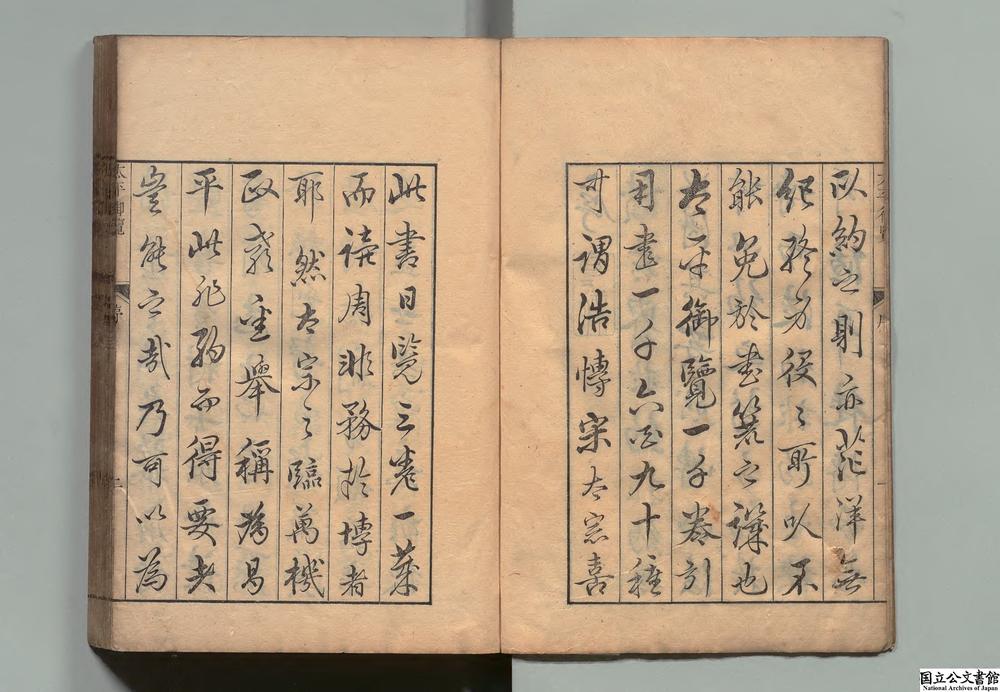 以約之則亦茫洋無
紀終身役之所以不
能免於書簏之譏也
太平御覽一千卷引
用書一千六百九十種
可謂浩博宋太宗喜
此書日覽三卷一葉
而讀周非務於博者
耶然太宗之臨萬機
政
舉稱為
平此非約而得要者
豈能之哉乃可以為
太平御覽
序
国立公文書館
National Archives of Japan